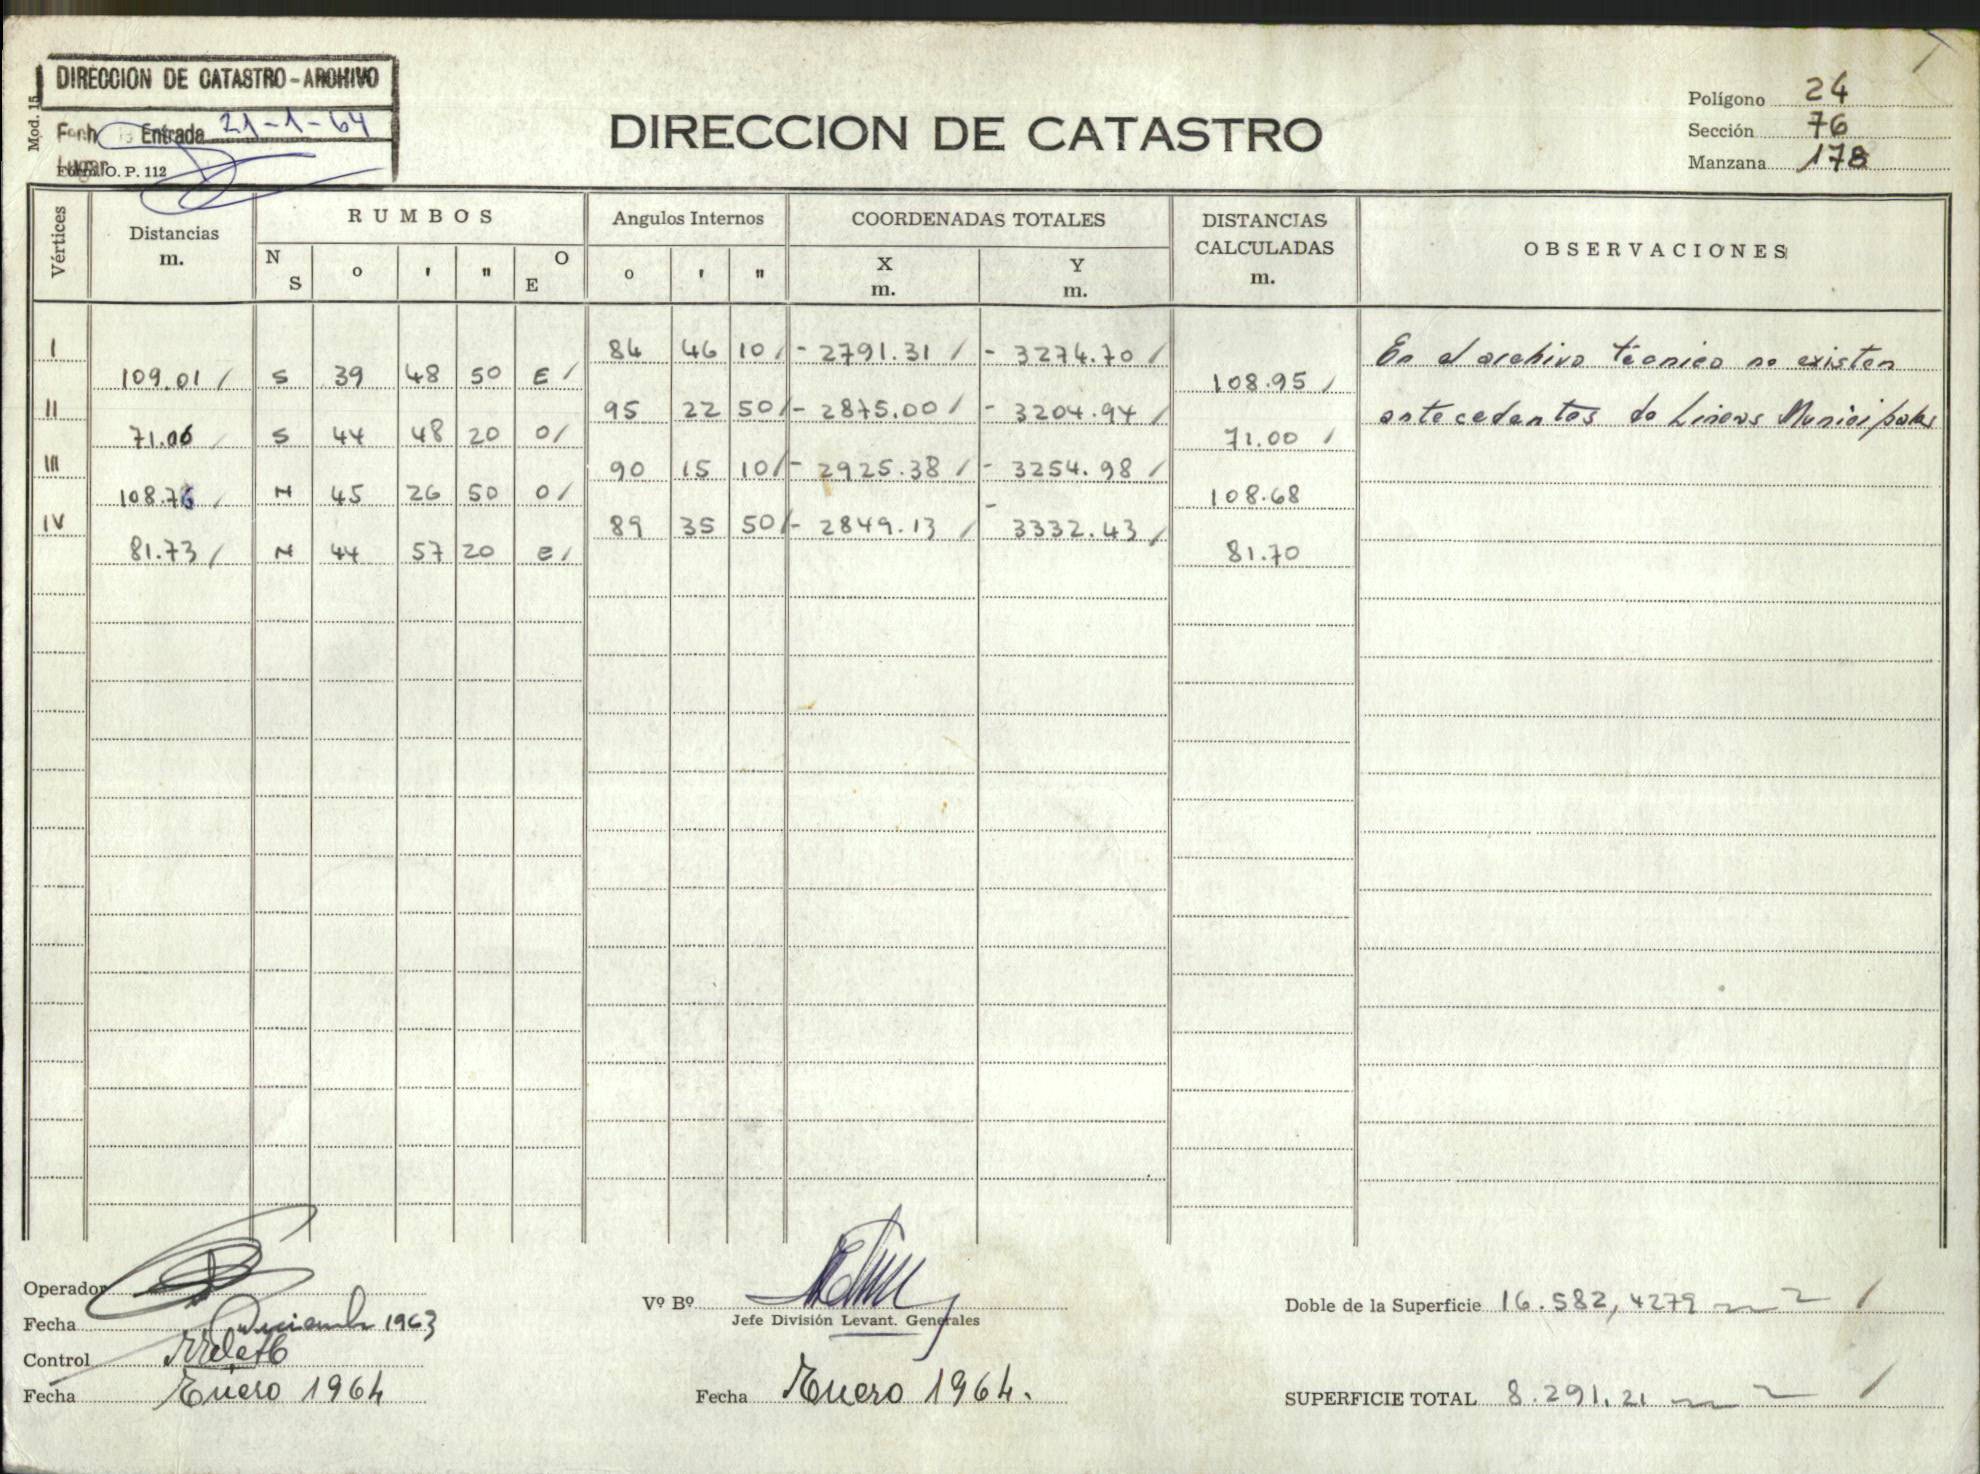 DIRECCION DE CATASTRO - ARCHIVO
Mod. 15
Entrada 21-1-64
Lugar
O. P. 112
DIRECCION DE CATASTRO
Polígono 24
Sección 76
Manzana 178
Vértices
Distancias
m.
RUMBOS
N
S
o
'
"
O
E
Angulos Internos
o
'
"
COORDENADAS TOTALES
X
m.
Y
m.
DISTANCIAS
CALCULADAS
m.
OBSERVACIONES
I 84 46 10 - 2791.31 - 3274.70 En el archivo técnico no existen
109.01 S 39 48 50 E 108.95
II 95 22 50 - 2875.00 - 3204.94 antecedentes de Lineas Municipales
71.06 S 44 48 20 O 71.00
III 90 15 10 - 2925.38 - 3254.98
108.76 N 45 26 50 O 108.68
IV 89 35 50 - 2849.13 - 3332.43
81.73 N 44 57 20 E 81.70
Operador
Fecha Diciembre 1963
Control
Fecha Enero 1964
Vº Bº
Jefe División Levant. Generales
Fecha Enero 1964.
Doble de la Superficie 16.582,4279 m2
SUPERFICIE TOTAL 8.291,21 m2